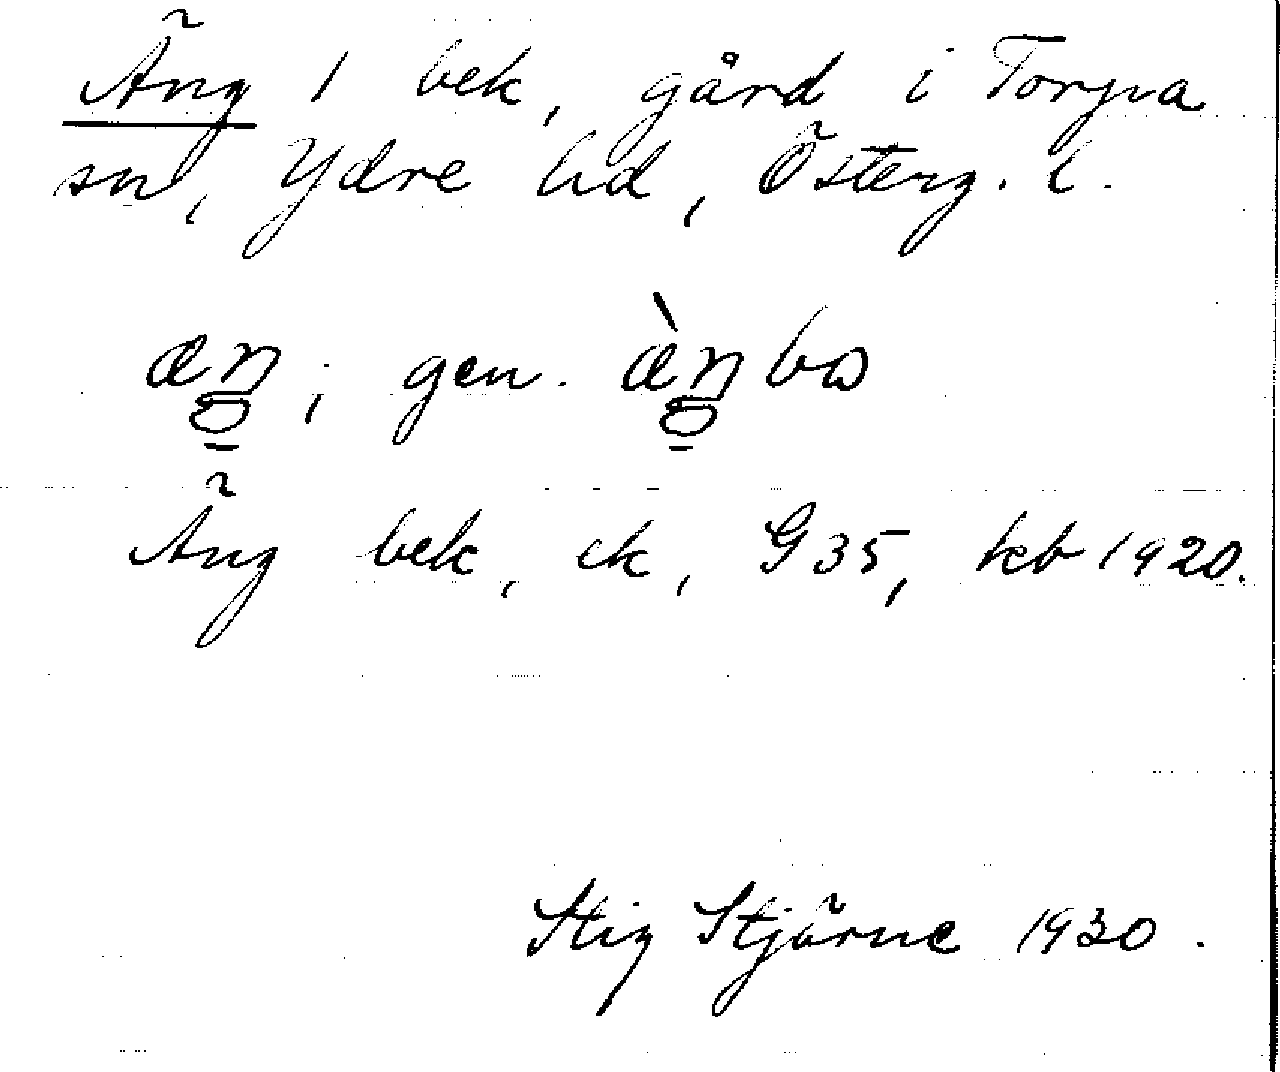 Äng 1 bek, gård i Torpa
sn, Ydre hd, Österg. l.
æŋ; gen. æ̀ŋbo
Äng bek, ek, G 35, kb 1920.
Stig Stjärne 1930.